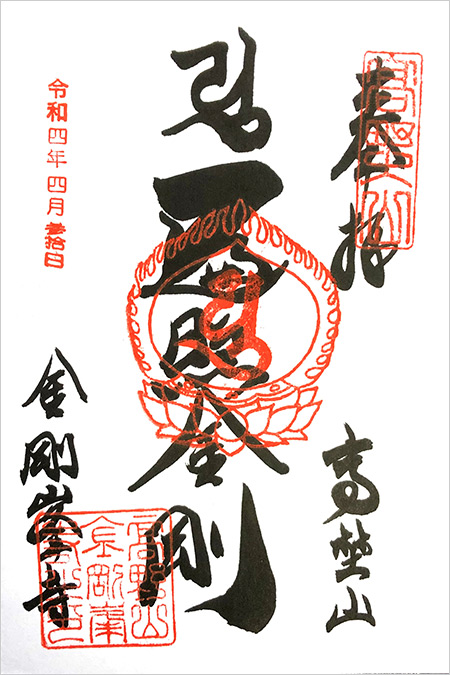 奉拝
高埜山
遍照金剛
令和四年四月参拾日
金剛峯寺
高野山
金剛峯